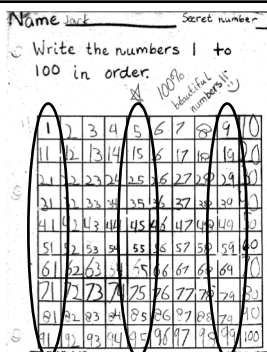 Name Jack Secret number
Write the numbers 1 to
100 in order.
100%
beautiful
numbers!!
1 2 3 4 5 6 7 8 9 10
11 12 13 14 15 16 17 18 19
21 22 23 24 25 26 27 28 29
31 32 33 34 35 36 37 38 39
41 42 43 44 45 46 47 48 49
51 52 53 54 55 56 57 58 59
61 62 63 65 66 67 68 69 70
71 72 73 74 75 76 77 78 79 80
81 82 83 84 85 86 87 88 79 90
91 92 93 94 95 96 97 98 99 100